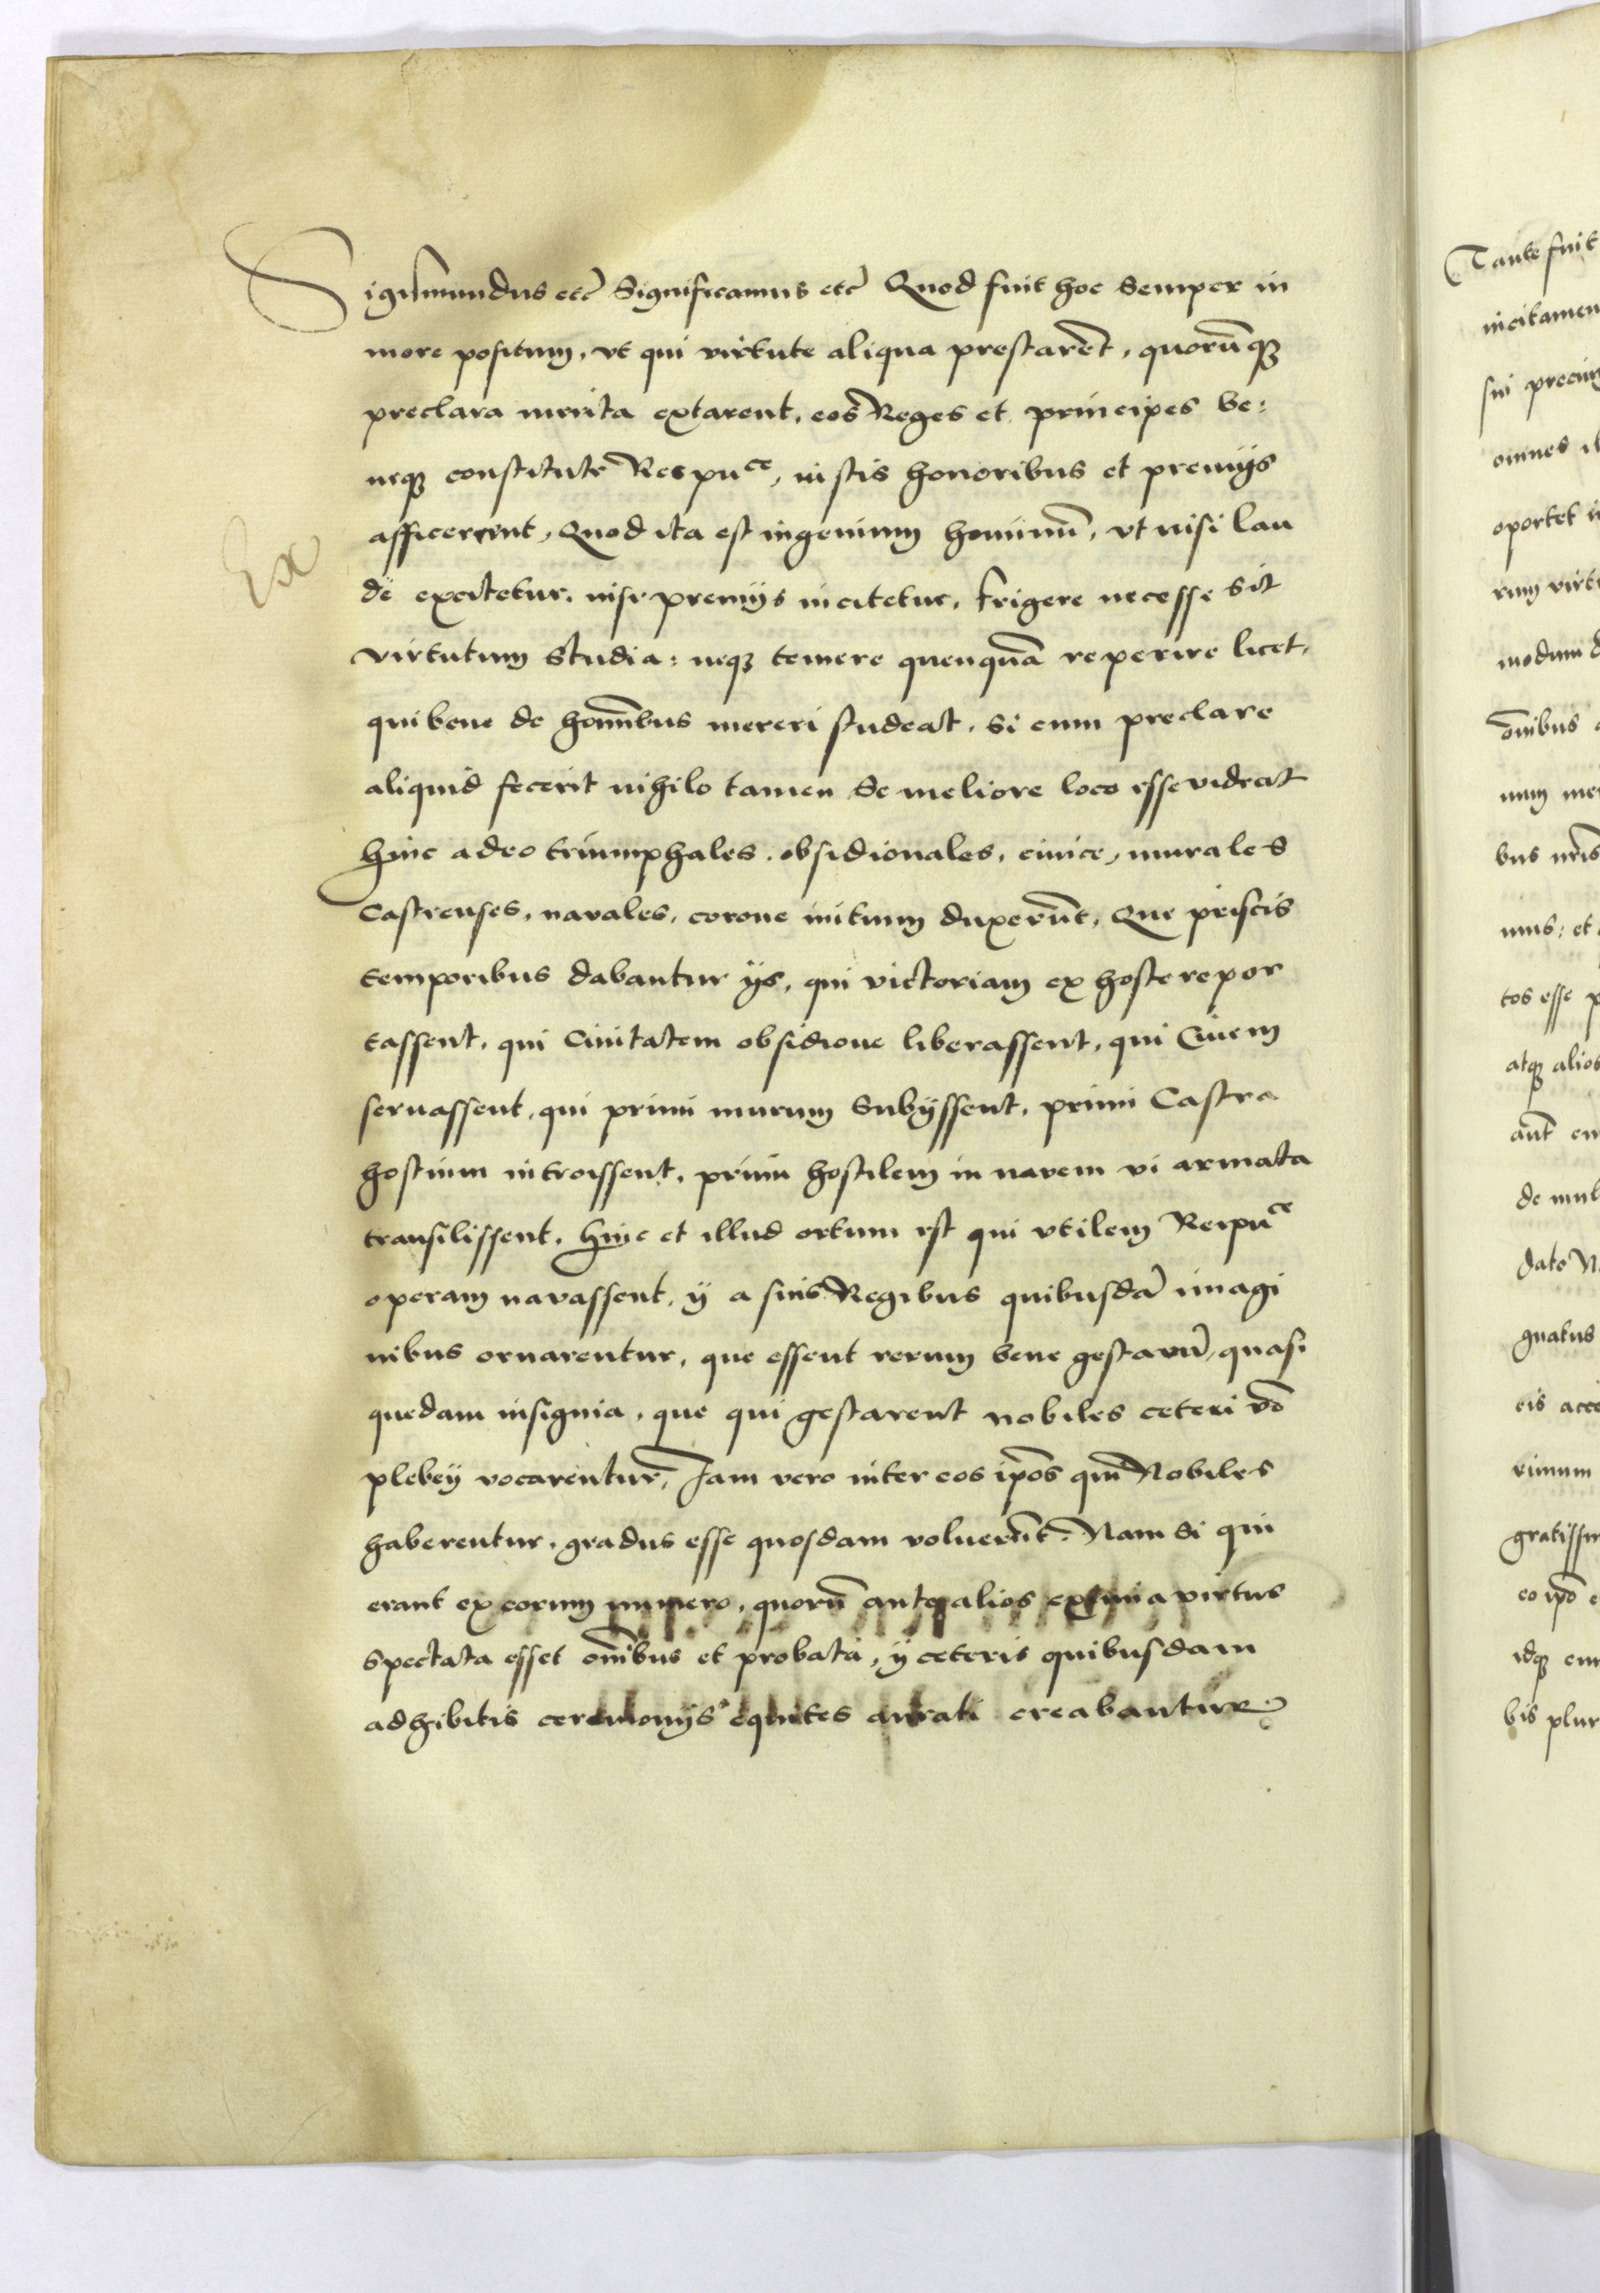 Sigismundus etc Significamus etc Quod fuit hoc semper in
more positum, vt qui virtute aliqua prestarēt, quorūqꝫ
preclara merita extarent, eos Reges et principes be:
neqꝫ constitute Respuce, iustis honoribus et premijs
afficerent, Quod ita est ingenium hominū, vt nisi lau
de excitetur, nisi premijs incitetur, frigere necesse sit
virtutum studia: neqꝫ temere quenquā reperire licet,
qui bene de hoīnibus mereri studeat, si cum preclare
aliquid fecerit nihilo tamen se meliore loco esse videat
Ex
Hinc adeo triumphales, obsidionales, ciuice, murales
Castrenses, nauales, corone initium duxerūt, Que priscis
temporibus dabantur ijs, qui victoriam ex hoste repor
tassent, qui Ciuitatem obsidione liberassent, qui Ciuem
seruassent, qui primi murum subijssent, primi Castra
hostium introissent, primi hostilem in nauem vi armata
transilissent, Hinc et illud ortum est qui vtilem Reipuce
operam nauassent, ij a suis Regibus quibusdā imagi
nibus ornarentur, que essent rerum bene gestarū, quasi
quedam insignia, que qui gestarent nobiles ceteri vō
plebeij vocarentur, Iam vero inter eos ipōs qui Nobiles
haberentur, gradus esse quosdam voluerūt. Nam si qui
erant ex eorum numero, quorū ante alios eximia virtus
spectata esset oīnibus et probata, ij ceteris quibusdam
adhibitis ceremonijs equites aurati creabantur
Tante fuit
incitamen
sui
omnes
oportet
rum
modum
oīnibus
num
bus nrīs
mus: et
tos esse
atqꝫ alios
aūt
de mul
dato
gnatus
eis
rimum
eo ipō
idqꝫ
bis plur